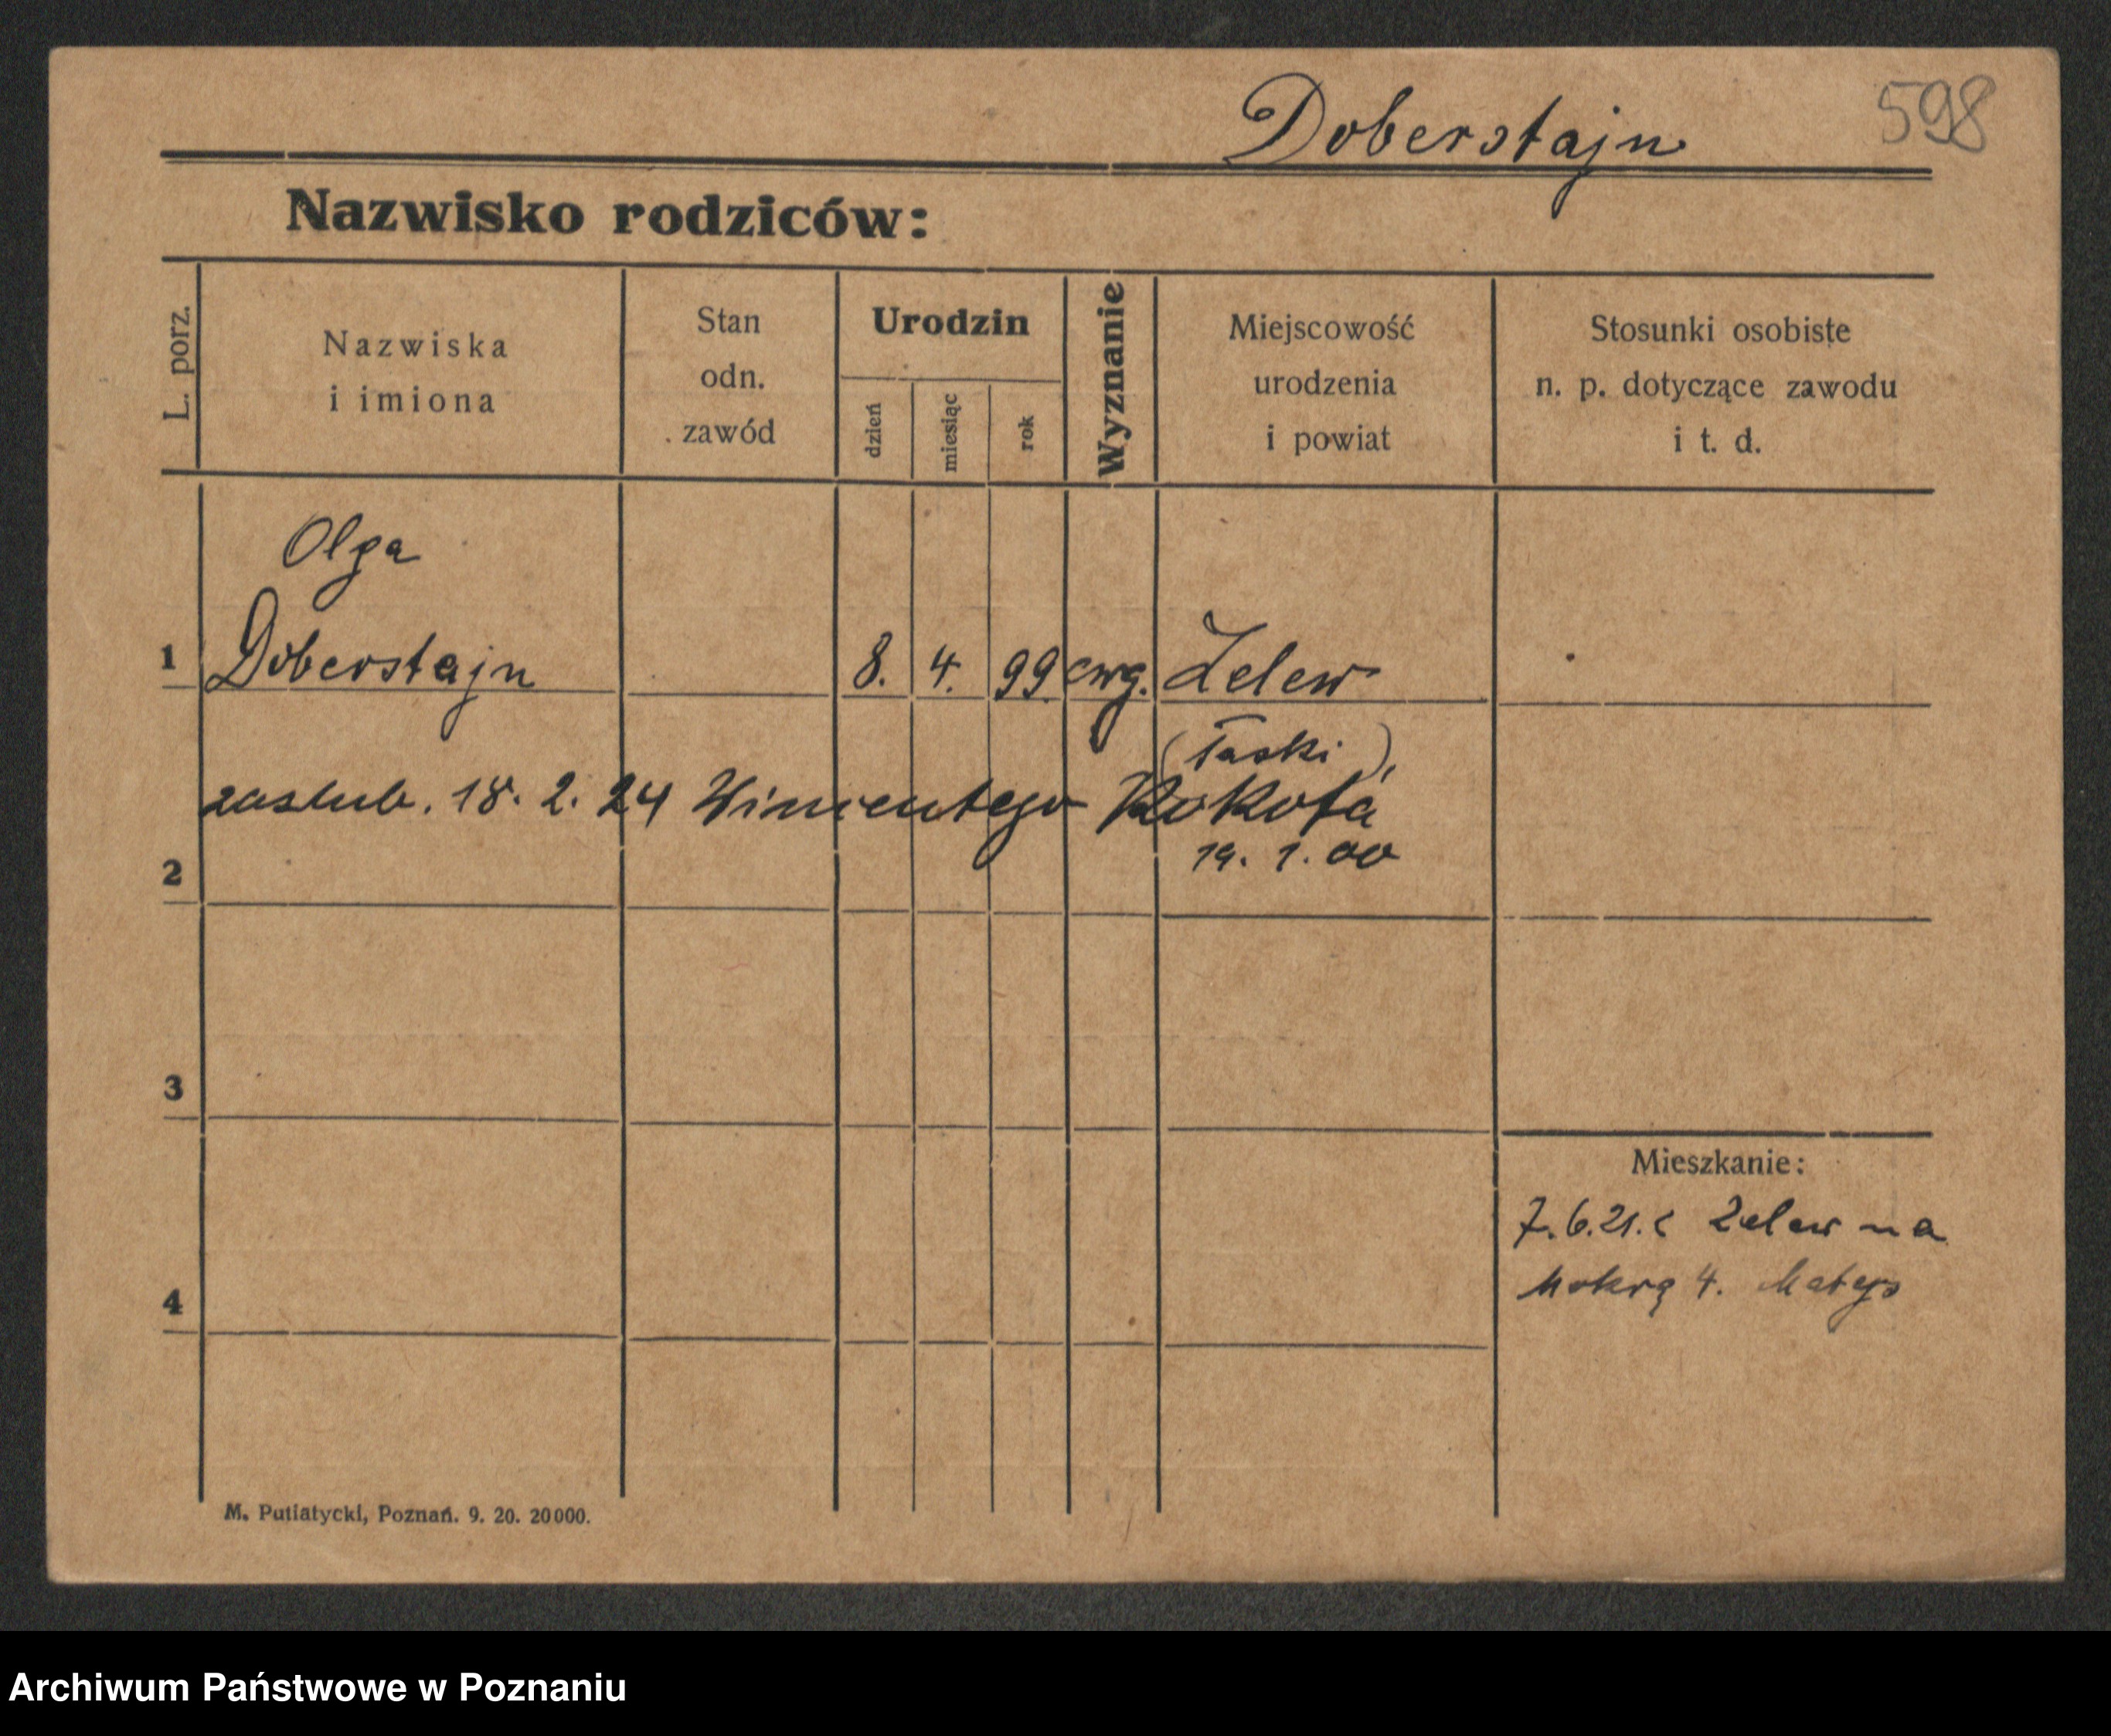 Doberstajn
598
Nazwisko rodziców:
L. porz.
Nazwiska
i imiona
Stan
odn.
zawód
Urodzin
dzień
miesiąc
rok
Wyznanie
Miejscowość
urodzenia
i powiat
Stosunki osobiste
n. p. dotyczące zawodu
i t. d.
Olga
1 Doberstajn 8. 4. 99 ewg. Zelew
(Łaski),
zaslub. 18. 2. 24 Wincentego Kokota
19. 1. 00
2
3
4
Mieszkanie:
7.6.21. z Zelew na
Mokrą 4.
M. Putiatycki, Poznań. 9. 20. 20000.
Archiwum Państwowe w Poznaniu